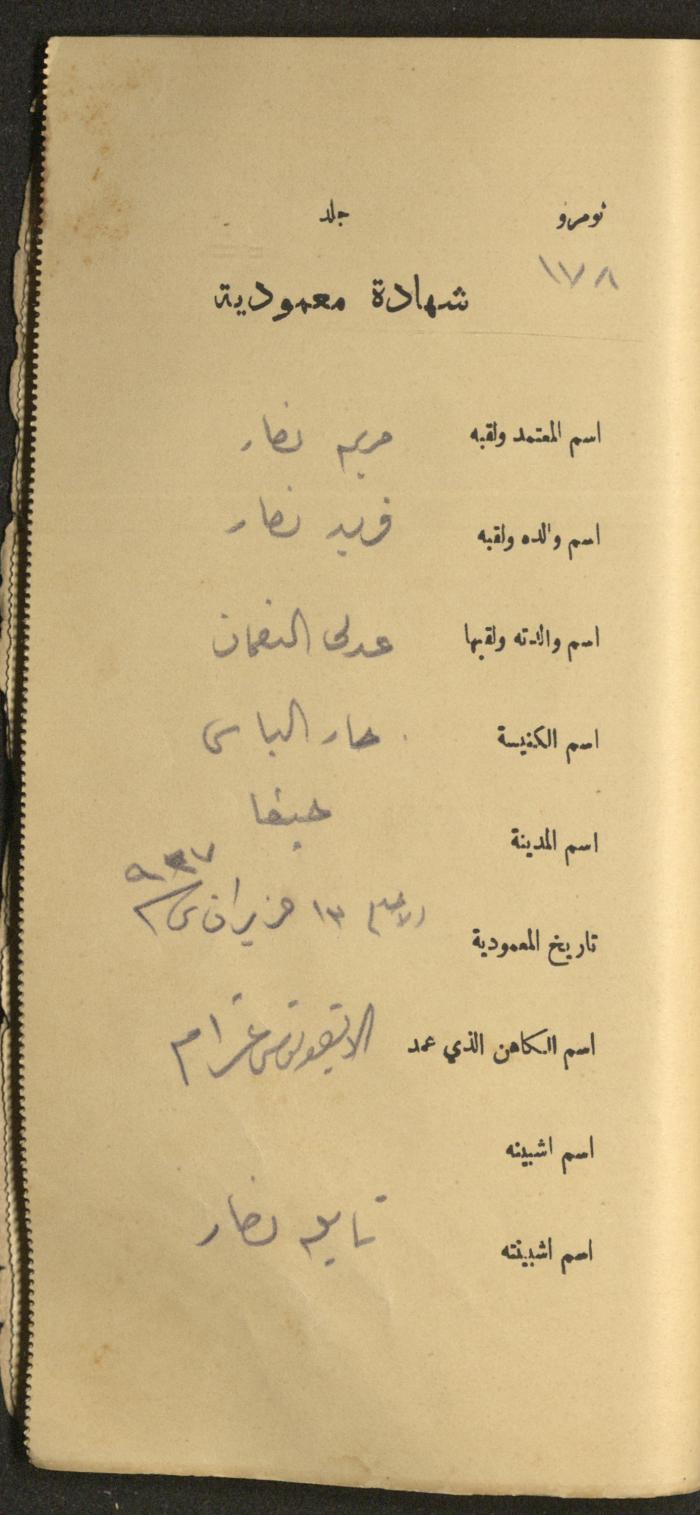 نومرو جلد
١٧٨
شهادة معمودية
اسم المعتمد ولقبه مريم نصار
اسم والده ولقبه فريد نصار
اسم والدته ولقبها عدلى النعمان
اسم الكنيسة مار الياس
اسم المدينة حيفا
تاريخ المعمودية ١٣ حزيران ٩٣٧
اسم الكاهن الذي عمد
اسم اشبينه
اسم اشبينته نصار